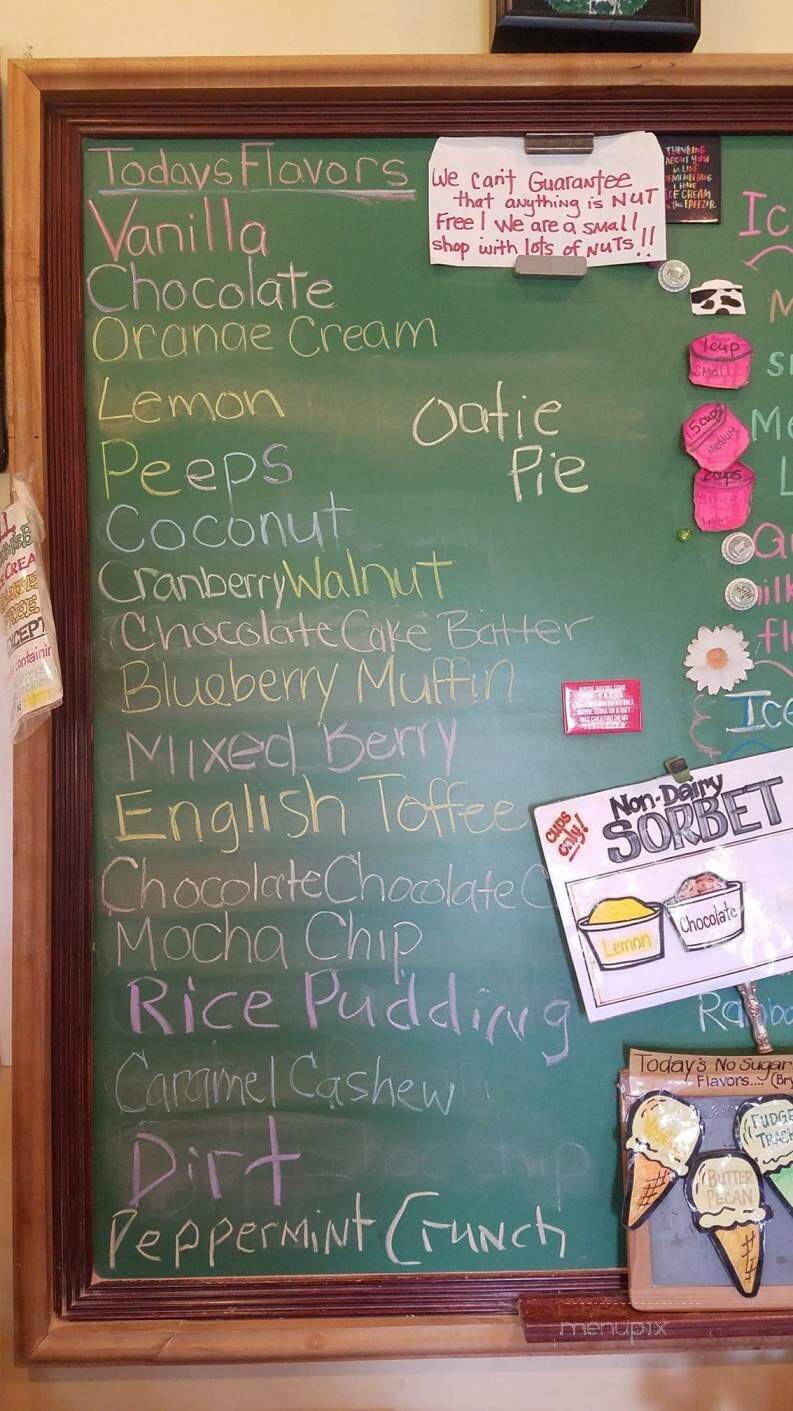 Todays Flavors
Vanilla
Chocolate
Orange Cream
Lemon
Peeps
Coconut
Cranberry Walnut
Chocolate Cake Batter
Blueberry Muffin
Mixed Berry
English Toffee
Chocolate Chocolate C
Mocha Chip
Rice Pudding
Caramel Cashew
Dirt
Peppermint Crunch
Oatie
Pie
We can't Guarantee
that anything is NUT
Free! We are a small
shop with lots of NUTS!!
THINKING
ABOUT YOU
IS LIKE
REMEMBERING
I HAVE
ICE CREAM
IN THE FREEZER
Ic
M
1 cup
SMALL
S
1.5 cups
Medium
Me
2 cups
L
Ice
Cups
only!
Non-Dairy
SORBET
Lemon
Chocolate
Today's No Sugar
Flavors....
BUTTER
PECAN
FUDGE
TRACK
menupix